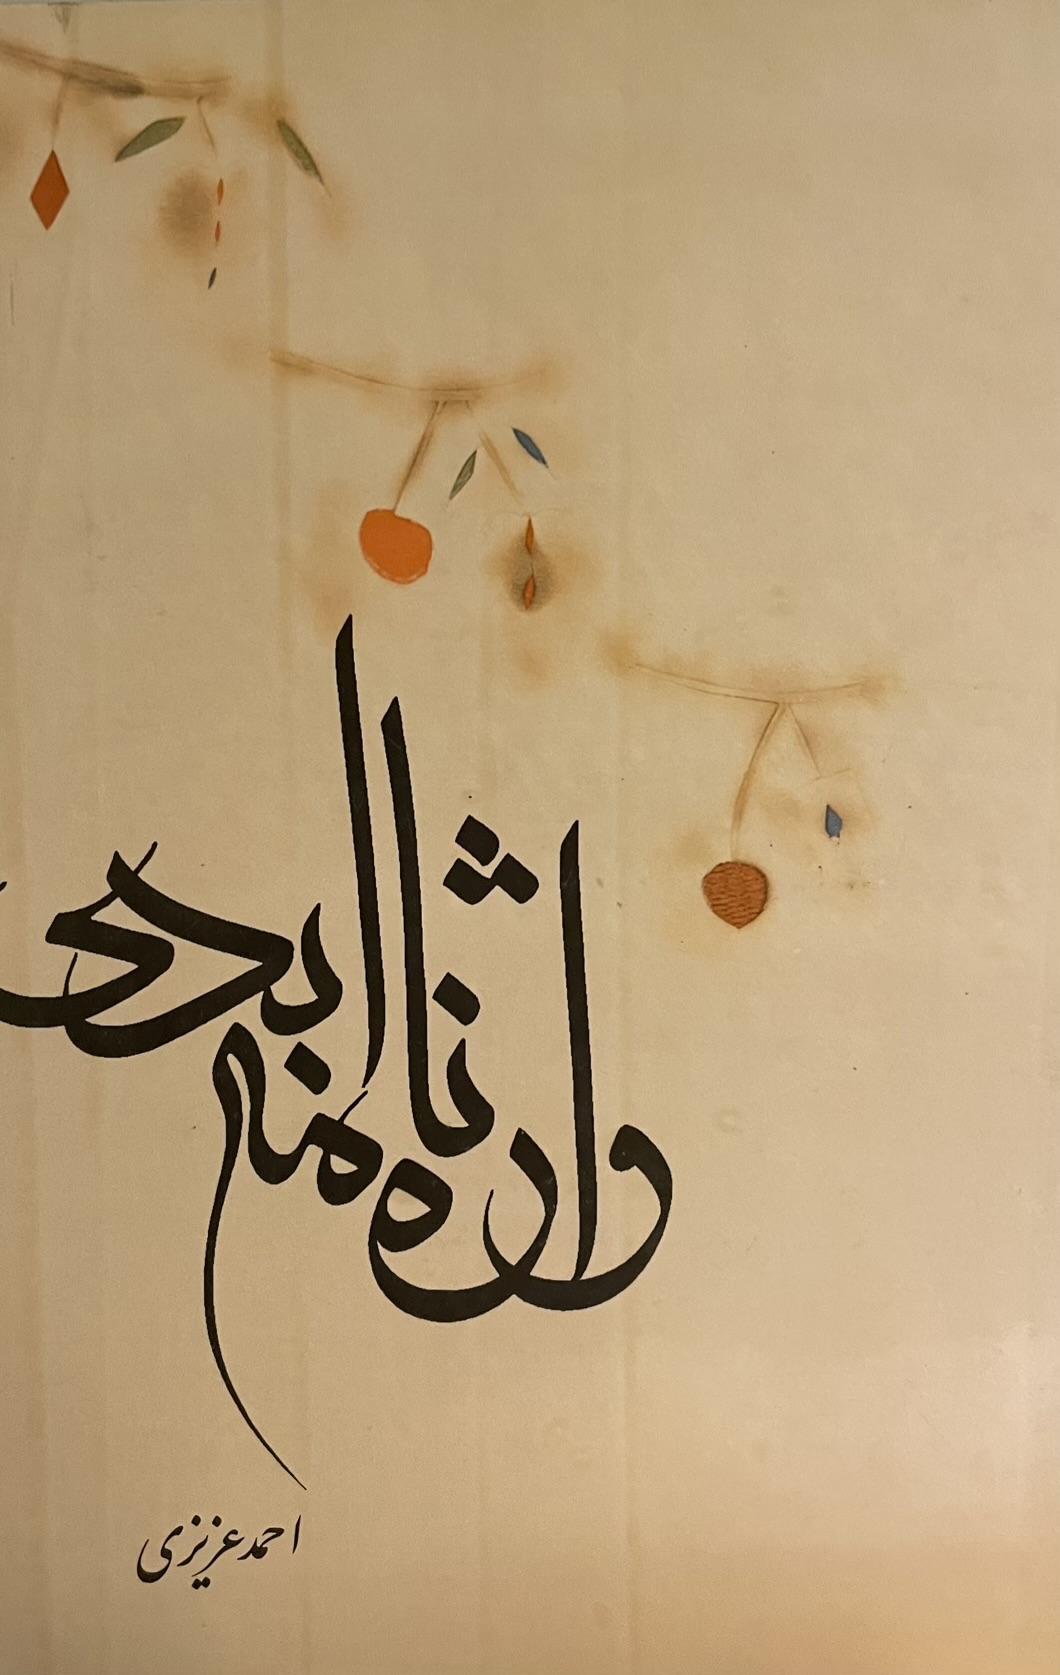 واژه نامه ابدی
احمد عزیزی